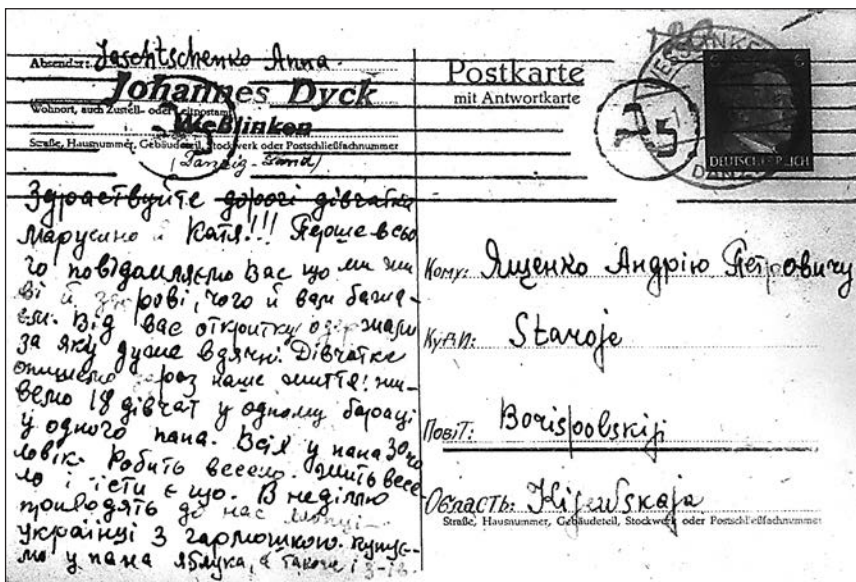 Absender: Jaschtschenko Anna.
Johannes Dyck
Wohnort, auch Zustell- oder Leitpostamt
Weßlinken
Straße, Hausnummer, Gebäudeteil, Stockwerk oder Postschließfachnummer
(Danzig-Land)
Здраствуйте дорогі дівчатка
Марусино й Катя!!! Перше всьо
го повідамляємо Вас що ми жи
ві й здорові, чого й вам бажа-
єм. Від вас открытку одержали
за яку дуже вдячні. Дівчатка
опишемо зараз наше життя: жи-
вемо 18 дівчат у одному бараці
у одного пана. Всіх у пана 30 чо
ловік. Робить весело. Жить весе-
ло і їсти є що. В неділлю
приходять до нас хлопці-
українці з гармошкою. Купує-
мо у пана яблука, а також і
Postkarte
mit Antwortkarte
25
DEUTSCHES REICH
Кому: Ященко Андрію Петровичу
Куди: Staroje
Повіт: Borispolskij
Область: Kijewskaja
Straße, Hausnummer, Gebäudeteil, Stockwerk oder Postschließfachnummer